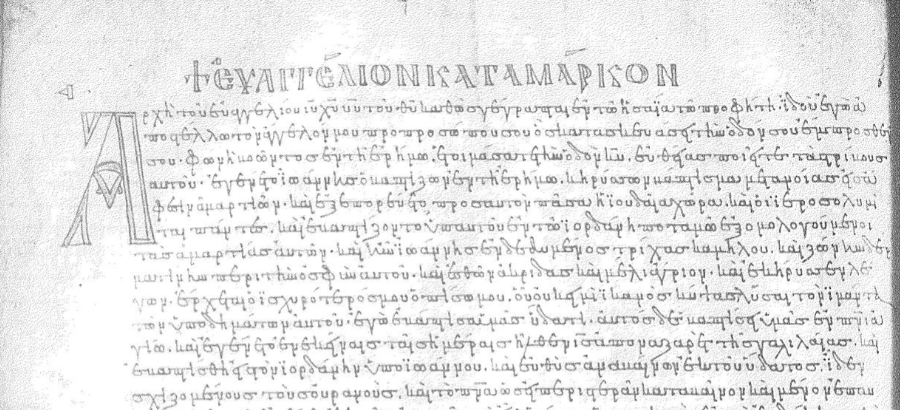 + ΕΥΑΓΓΕΛΙΟΝ ΚΑΤΑ ΜΑΡΚΟΝ
Αρχὴ τοῦ εὐαγγελίου ιυ χυ υυ τοῦ θυ καθὼς γέγραπται ἐν τῶ ἡσαΐα τῶ προφήτη· ἰδοὺ ἐγὼ ἀ
ποστέλλω τὸν ἄγγελόν μου πρὸ προσώπου σου ὃς κατασκευάσει τὴν ὁδόν σου ἔμπροσθέν
σου· φωνὴ βοῶντος ἐν τῆ ἐρήμω· ἑτοιμάσατε τὴν ὁδὸν κυ, εὐθείας ποιεῖτε τὰς τρίβους
αὐτοῦ· ἐγένετο ἰωάννης ὁ βαπτίζων ἐν τῆ ἐρήμω· κηρύσσων βάπτισμα μετανοίας
ἁμαρτιῶν· καὶ ἐξεπορεύετο πρὸς αὐτὸν πᾶσα ἡ ἰουδαία χώρα· καὶ οἱ ἱεροσολυμῖ
ται πάντες· καὶ ἐβαπτίζοντο ὑπ αὐτοῦ ἐν τῶ ἰορδάνη ποταμῶ ἐξομολογούμενοι
τὰς ἁμαρτίας αὐτῶν· ἰωάννης ἐνδεδυμένος τρίχας καμήλου· καὶ ζώνην δερ
ματίνην περὶ τὴν ὀσφὺν αὐτοῦ· καὶ ἐσθίων ἀκρίδας καὶ μέλι ἄγριον· καὶ ἐκήρυσσεν λέ
γων· ἔρχεται ὁ ἰσχυρότερός μου ὀπίσω μου· οὗ οὐκ εἰμὶ ἱκανὸς κύψας λῦσαι τὸν ἱμάντα
τῶν ὑποδημάτων αὐτοῦ· ἐγὼ ἐβάπτισα ὑμᾶς ὕδατι· αὐτὸς δὲ βαπτίσει ὑμᾶς ἐν πνι ἁ
γίω· καὶ ἐγένετο ἐν ἐκείναις ταῖς ἡμέραις ἦλθεν ις ἀπὸ ναζαρὲτ τῆς γαλιλαίας· καὶ
ἐβαπτίσθη εἰς τὸν ἰορδάνην ὑπὸ ἰωάννου· καὶ εὐθὺς ἀναβαίνων ἐκ τοῦ ὕδατος· ἴδεν
σχιζομένους τοὺς οὐρανούς· καὶ τὸ πνα ὡσεὶ περιστερὰν καταβαῖνον καὶ μένον ἐπ αυ